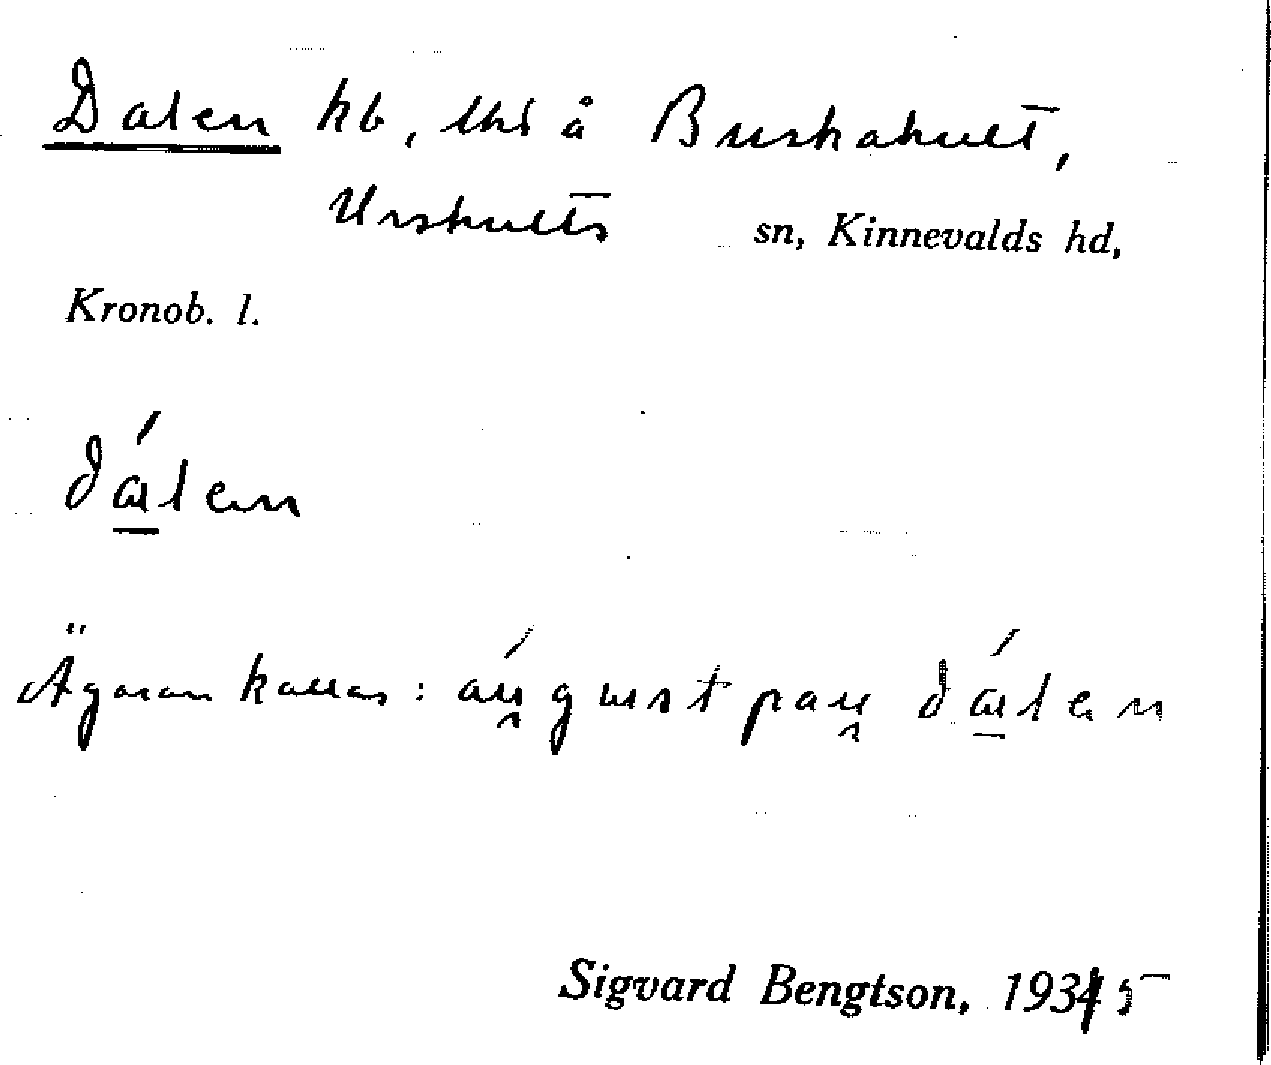 Dalen hb, uhd å Buskahult,
Urshults sn, Kinnevalds hd,
Kronob. l.
dálen
Ägaren kallas: áugust pau dálen
Sigvard Bengtson, 1934 5